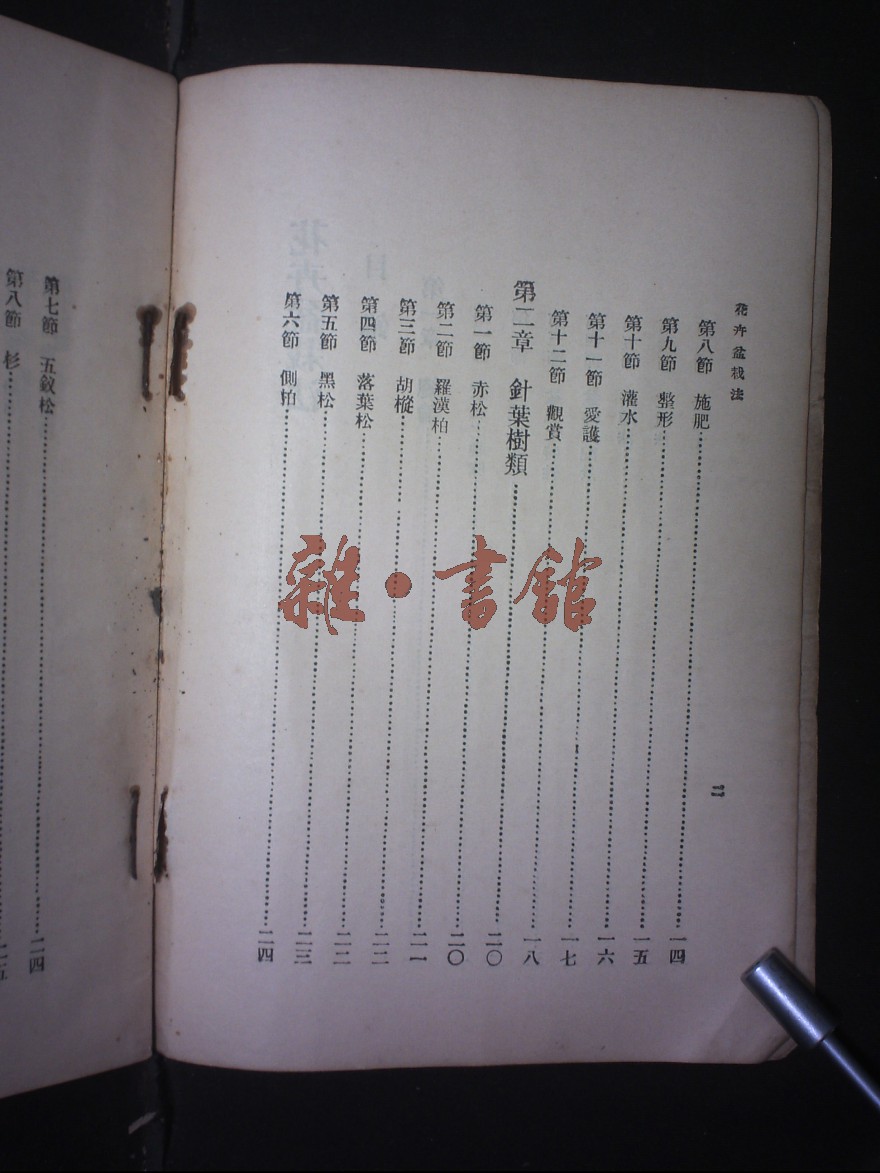 花卉盆栽法
二
第八節 施肥……一四
第九節 整形……一五
第十節 灌水……一六
第十一節 愛護……一七
第十二節 觀賞……一八
第二章 針葉樹類……二〇
第一節 赤松……二〇
第二節 羅漢柏……二一
第三節 胡樅……二二
第四節 落葉松……二二
第五節 黑松……二三
第六節 側柏……二四
第七節 五釵松……二四
第八節 杉……二五
雜·書館